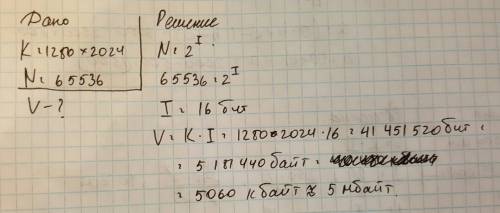 Дано
K=1280×2024
N=65536
V-?
Решение
N=2^I
65536=2^I
I=16 бит
V=K·I=1280·2024·16=41 451 520 бит=
=5 181 440 байт=
=5060 кбайт ≈ 5 мбайт.